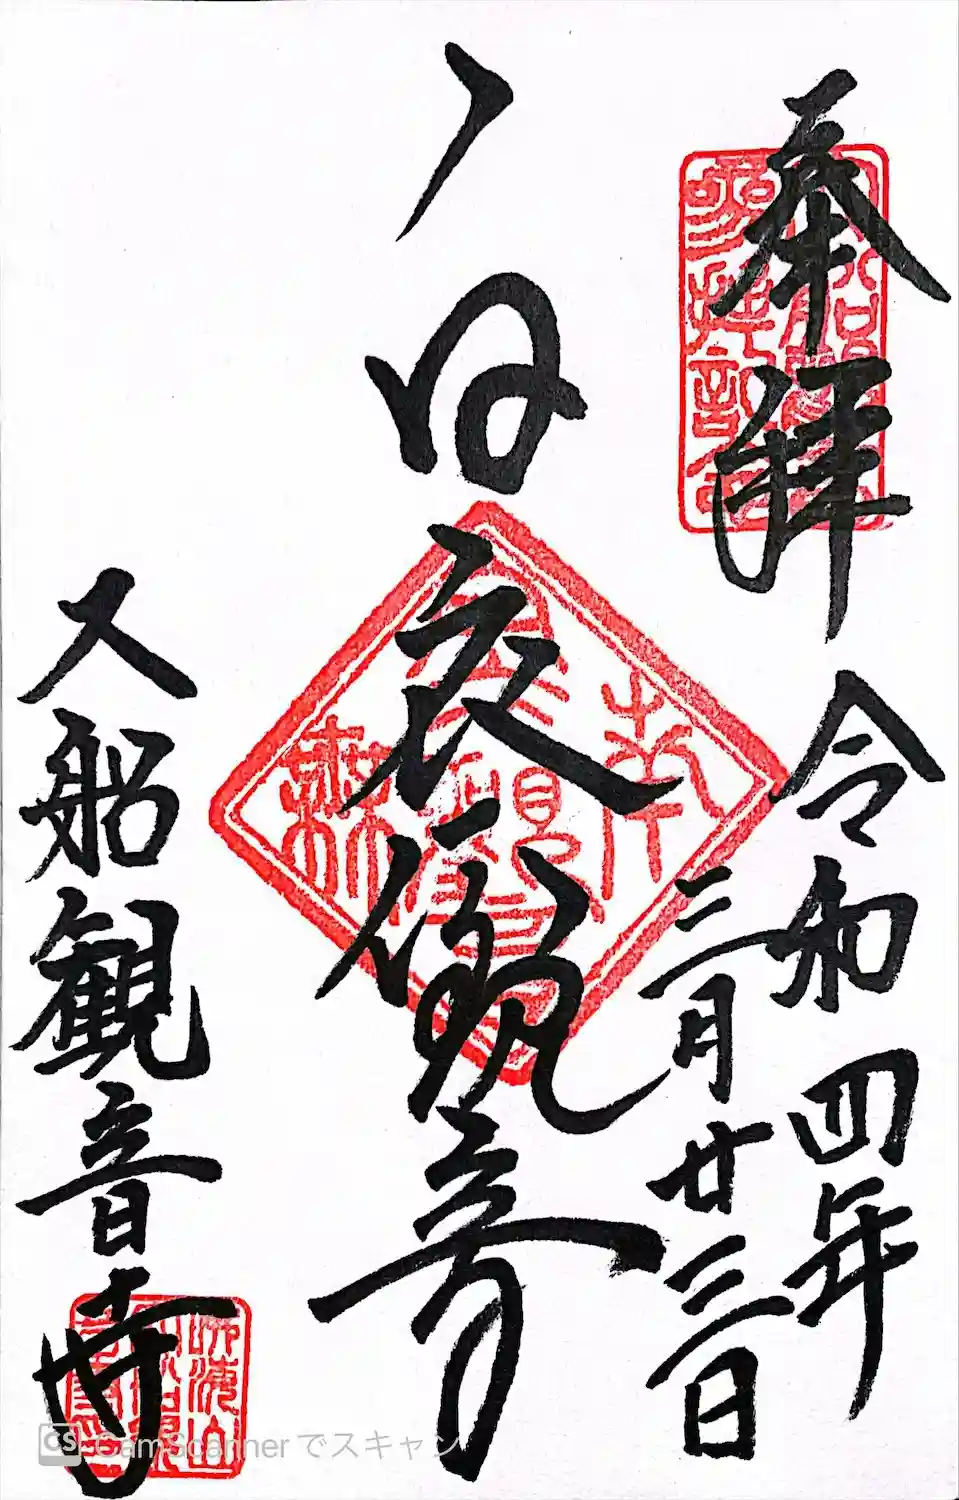 奉拝
令和四年
三月廿三日
白衣観音
大船観音寺
CS CamScanner でスキャン